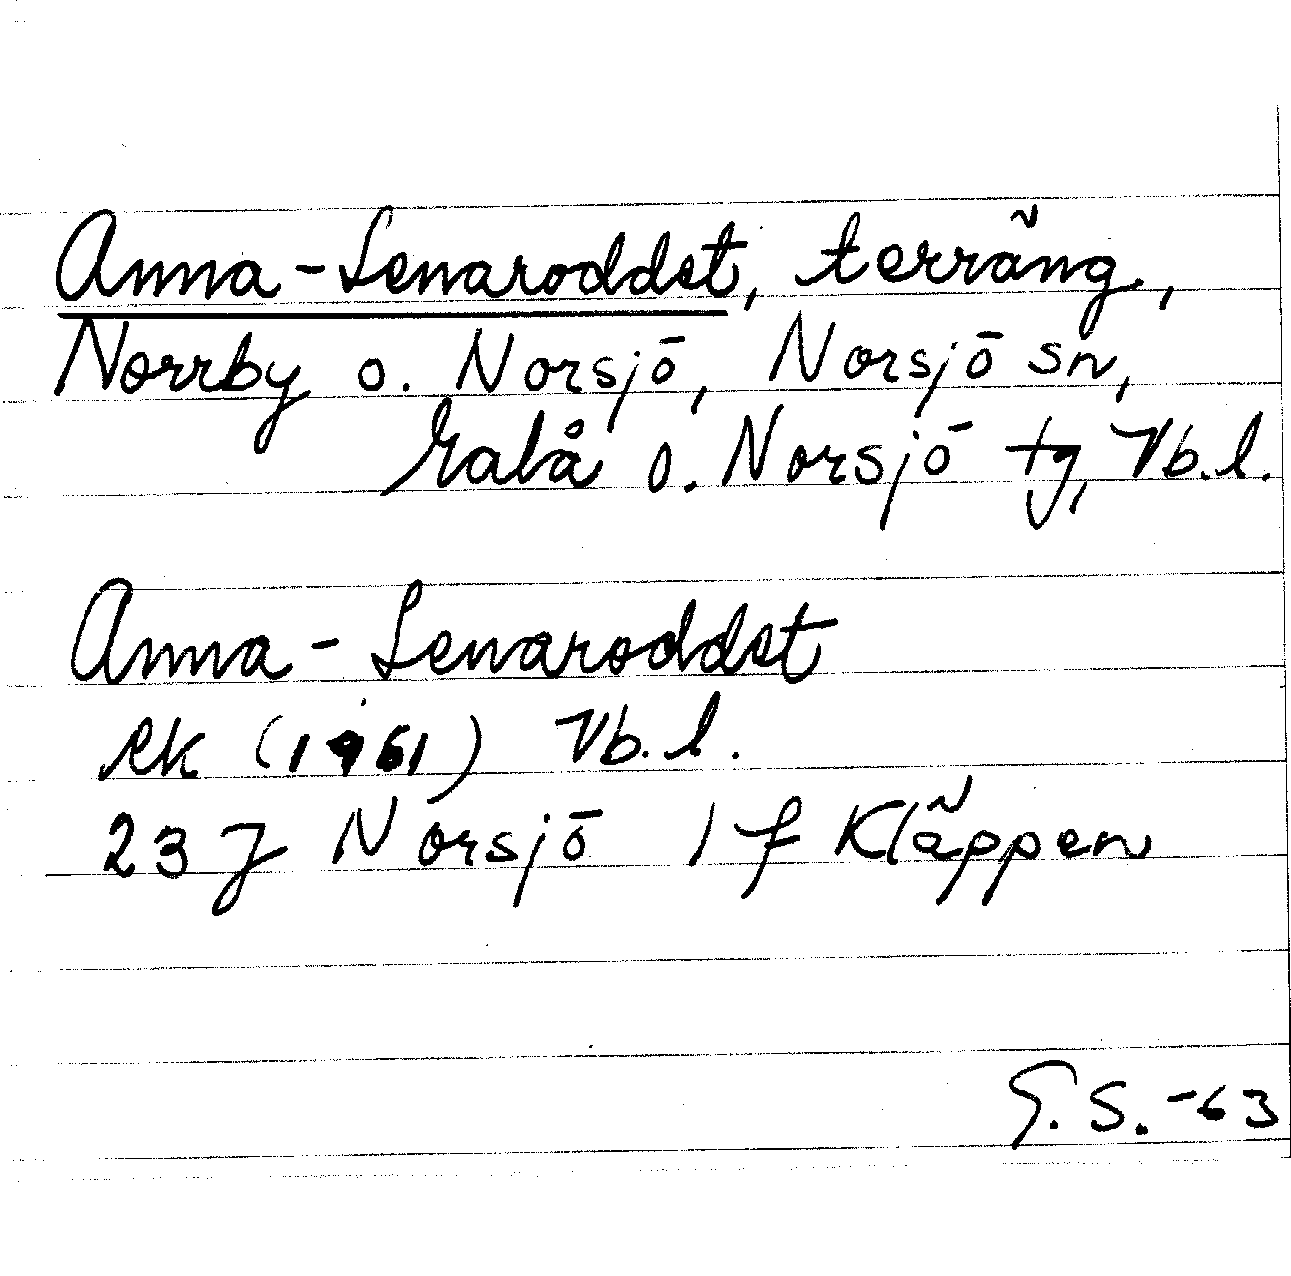 Anna-Lenaroddet, terräng,
Norrby o. Norsjö, Norsjö sn,
Malå o. Norsjö tg, Vb.l.
Anna-Lenaroddet
ek (1961) Vb.l.
23 J Norsjö 1 f Kläppen
G.S. -63